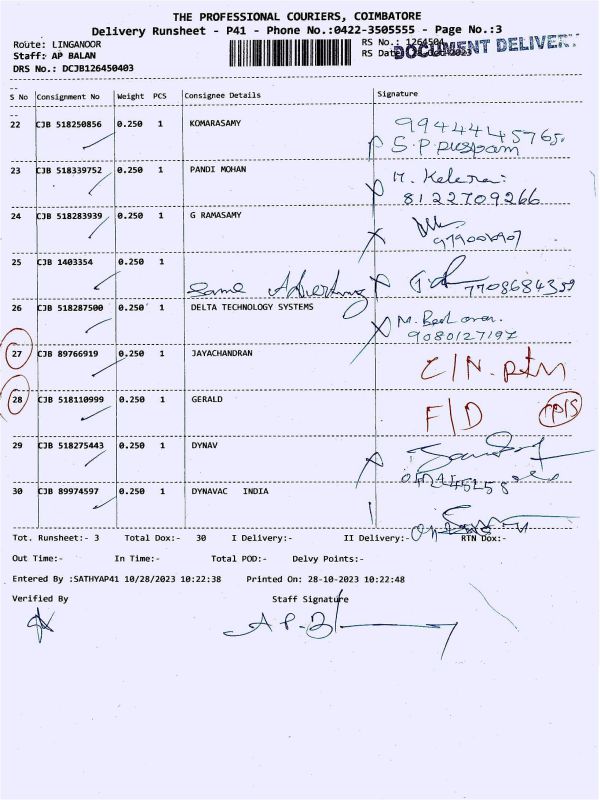 THE PROFESSIONAL COURIERS, COIMBATORE
Delivery Runsheet - P41 - Phone No.:0422-3505555 - Page No.:3
Route: LINGANOOR RS No.: 1264504
Staff: AP BALAN RS Date
DRS No.: DCJB126450403
DOCUMENT DELIVERY
S No Consignment No Weight PCS Consignee Details Signature
22 CJB 518250856 0.250 1 KOMARASAMY 9944445765
S.P. puspam
23 CJB 518339752 0.250 1 PANDI MOHAN M.
8122709266
24 CJB 518283939 0.250 1 G RAMASAMY
25 CJB 1403354 0.250 1 Same 7708684359
26 CJB 518287500 0.250 1 DELTA TECHNOLOGY SYSTEMS M.
9080127197
27 CJB 89766919 0.250 1 JAYACHANDRAN C/N.
28 CJB 518110999 0.250 1 GERALD F/D
29 CJB 518275443 0.250 1 DYNAV
30 CJB 89974597 0.250 1 DYNAVAC INDIA
Tot. Runsheet:- 3 Total Dox:- 30 I Delivery:- II Delivery:- RTN Dox:-
Out Time:- In Time:- Total POD:- Delvy Points:-
Entered By :SATHYAP41 10/28/2023 10:22:38 Printed On: 28-10-2023 10:22:48
Verified By Staff Signature
A P.